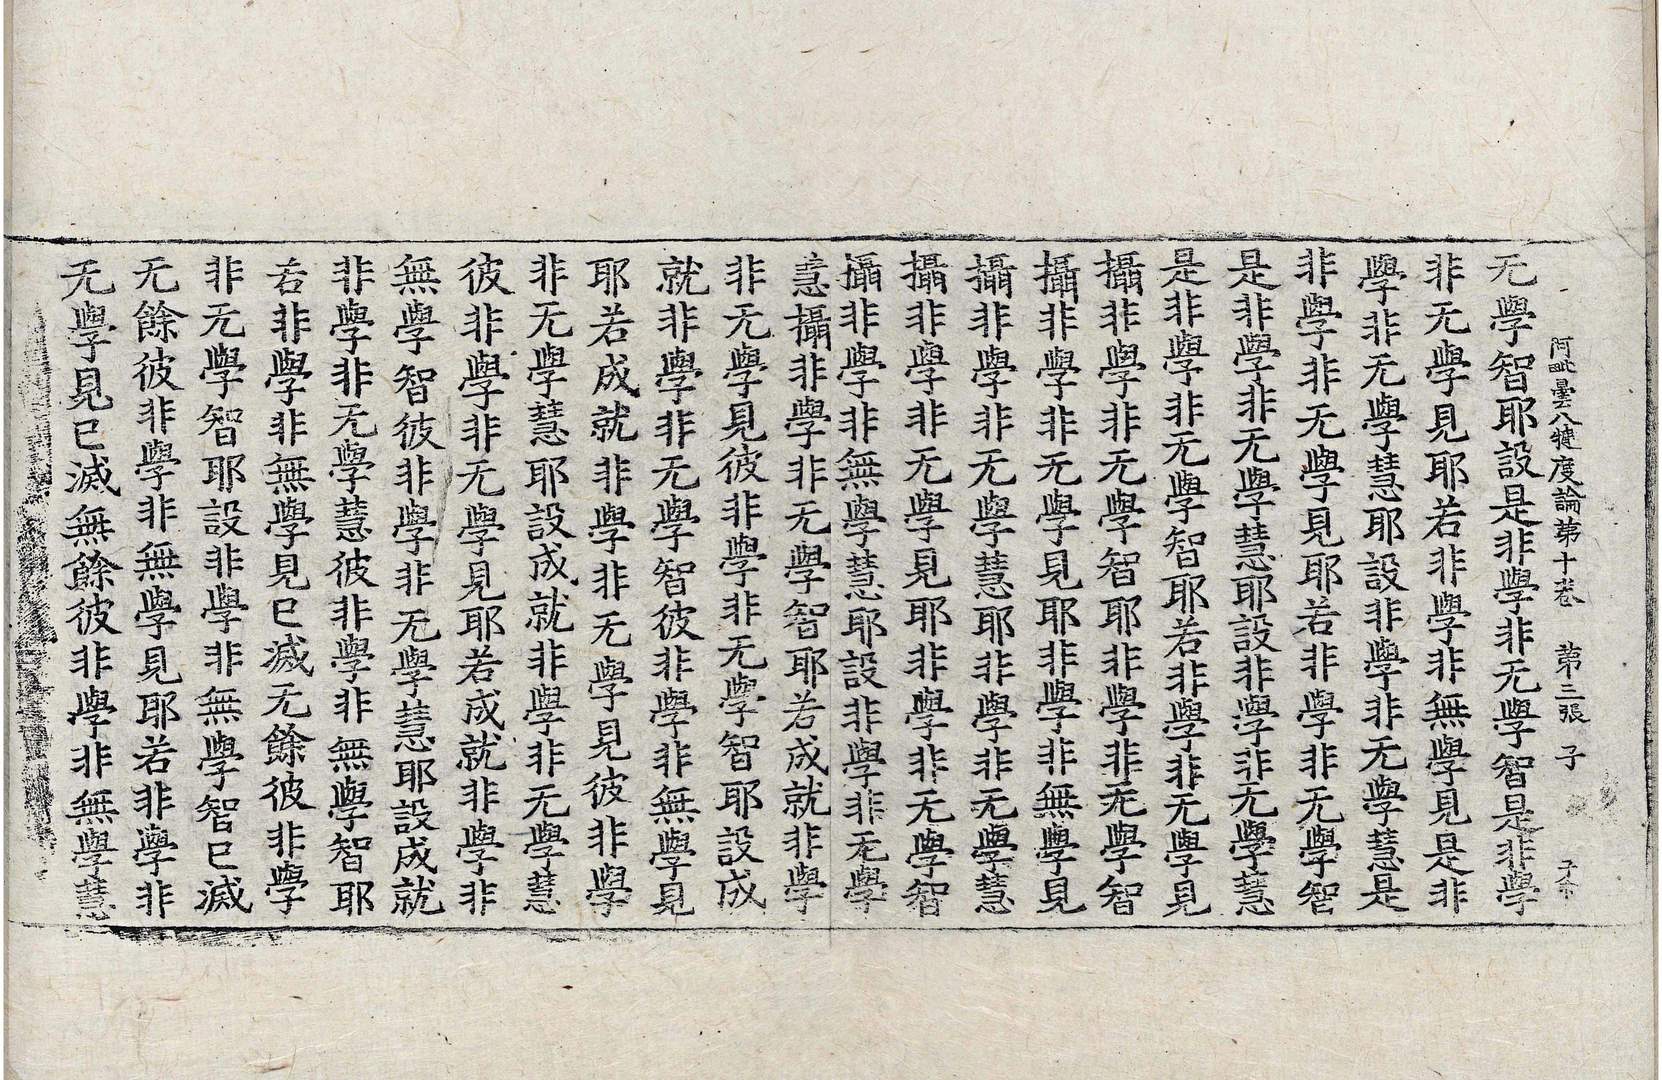 阿毗曇八犍度論第十卷 第三張 子
无學智耶設是非學非无學智是非學
非无學見耶若非學非無學見是非
學非无學慧耶設非學非无學慧是
非學非无學見耶若非學非无學智
是非學非无學慧耶設非學非无學慧
是非學非无學智耶若非學非无學見
攝非學非无學智耶非學非无學智
攝非學非无學見耶非學非無學見
攝非學非无學慧耶非學非无學慧
攝非學非无學見耶非學非无學智
攝非學非無學慧耶設非學非无學
慧攝非學非无學智耶若成就非學
非无學見彼非學非无學智耶設成
就非學非无學智彼非學非無學見
耶若成就非學非无學見彼非學
非无學慧耶設成就非學非无學慧
彼非學非无學見耶若成就非學非
無學智彼非學非无學慧耶設成就
非學非无學慧彼非學非無學智耶
若非學非無學見已滅无餘彼非學
非无學智耶設非學非無學智已滅
无餘彼非學非無學見耶若非學非
无學見已滅無餘彼非學非無學慧